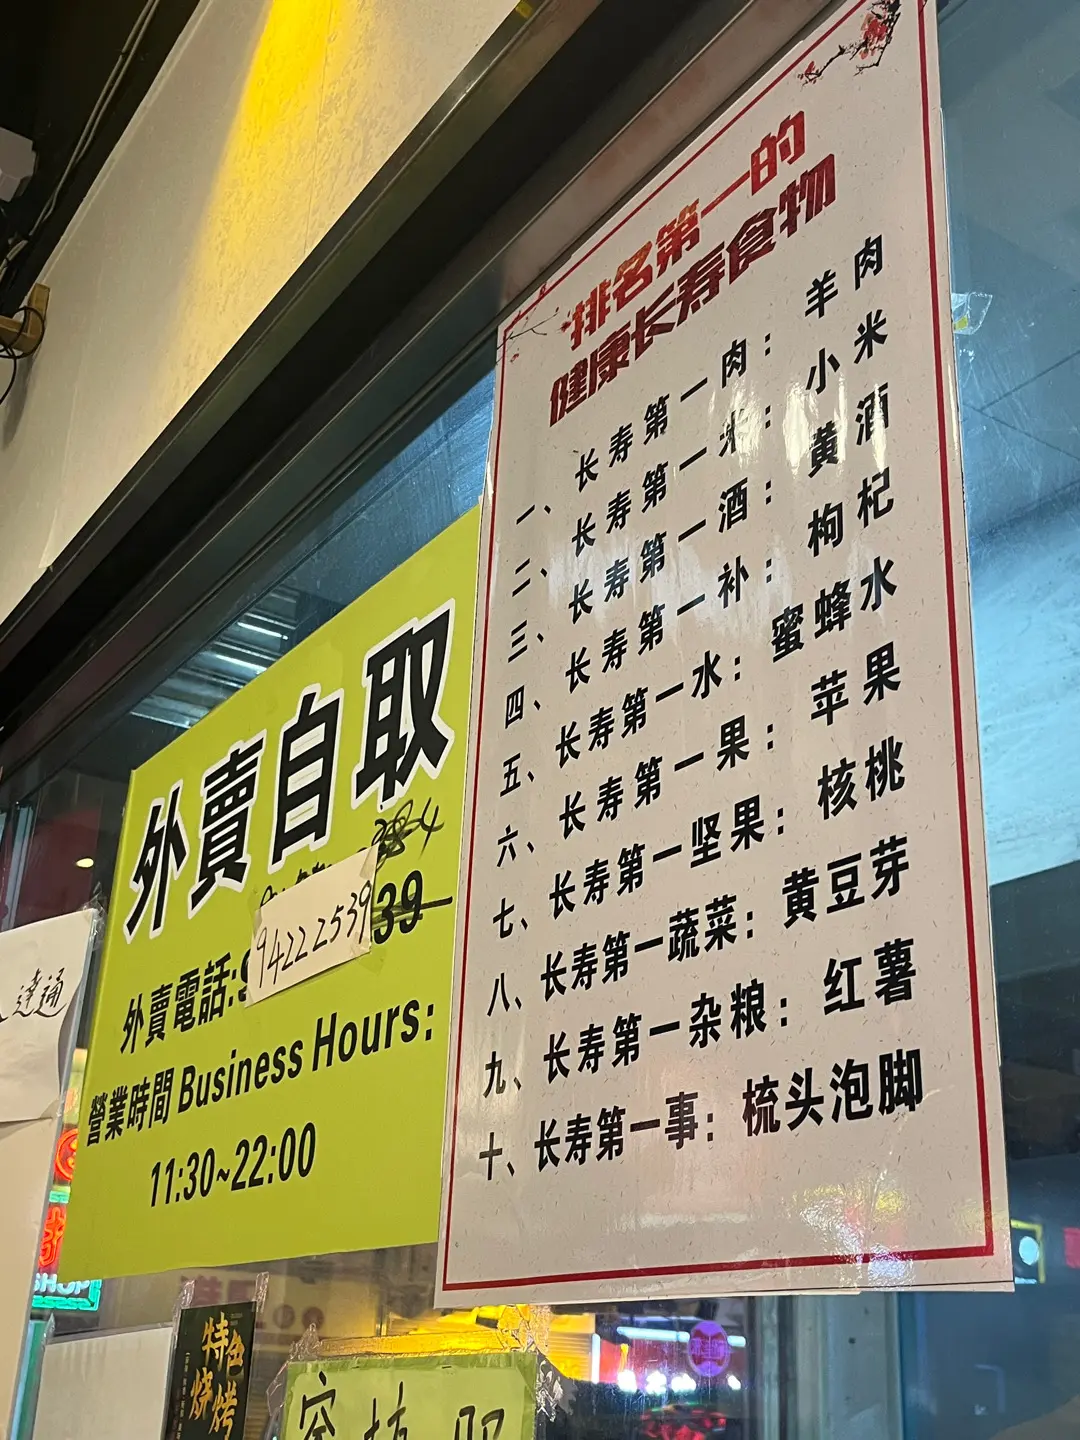 排名第一的
健康长寿食物
一、长寿第一肉：羊肉
二、长寿第一米：小米
三、长寿第一酒：黄酒
四、长寿第一补：枸杞
五、长寿第一水：蜜蜂水
六、长寿第一果：苹果
七、长寿第一坚果：核桃
八、长寿第一蔬菜：黄豆芽
九、长寿第一杂粮：红薯
十、长寿第一事：梳头泡脚
外賣自取
外賣電話:94222539
39
營業時間 Business Hours:
11:30~22:00
達通
SHOP
特色
烧烤